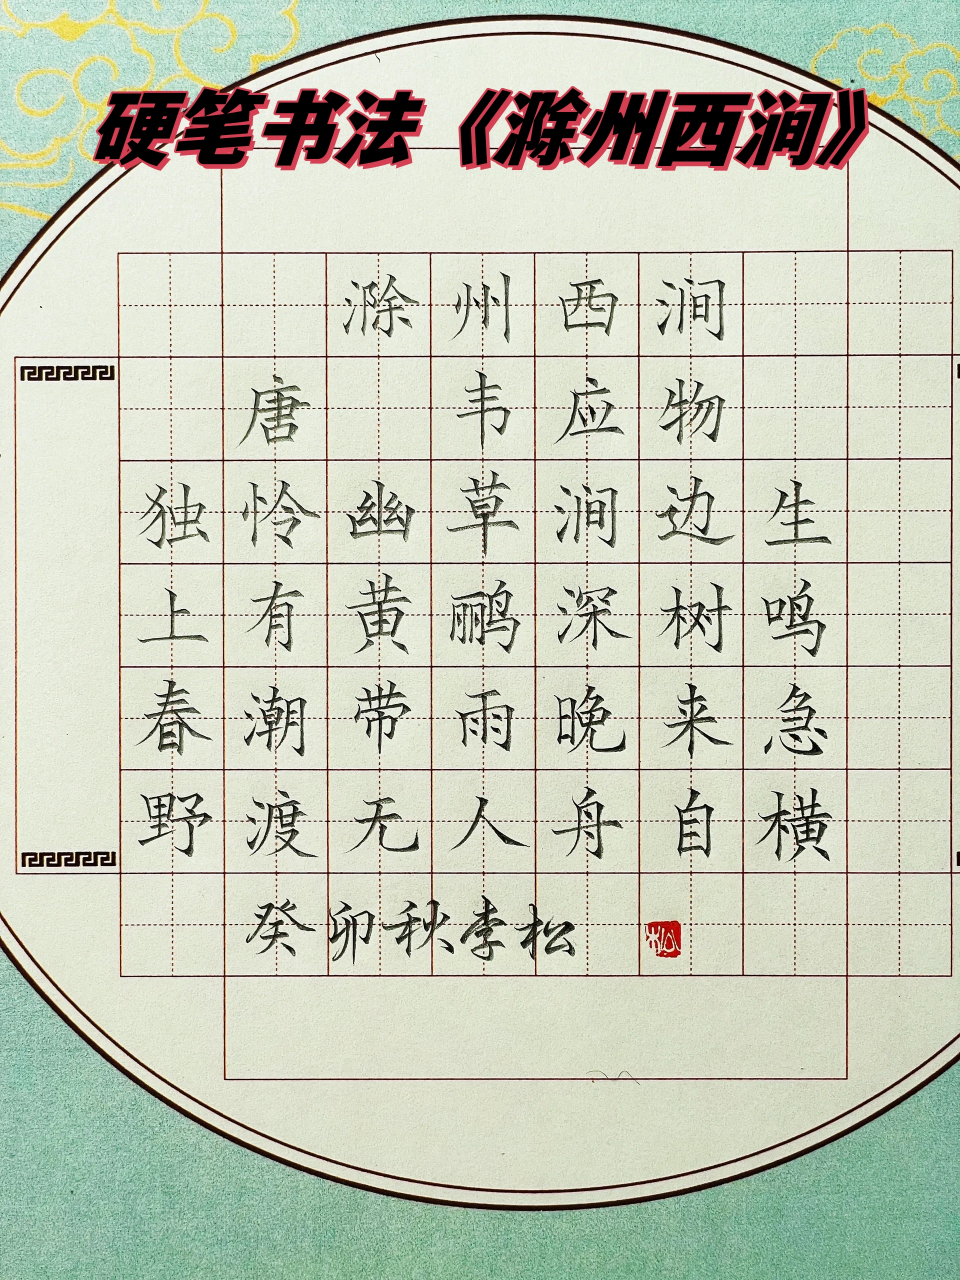 硬笔书法《滁州西涧》
滁州西涧
唐 韦应物
独怜幽草涧边生
上有黄鹂深树鸣
春潮带雨晚来急
野渡无人舟自横
癸卯秋李松
松